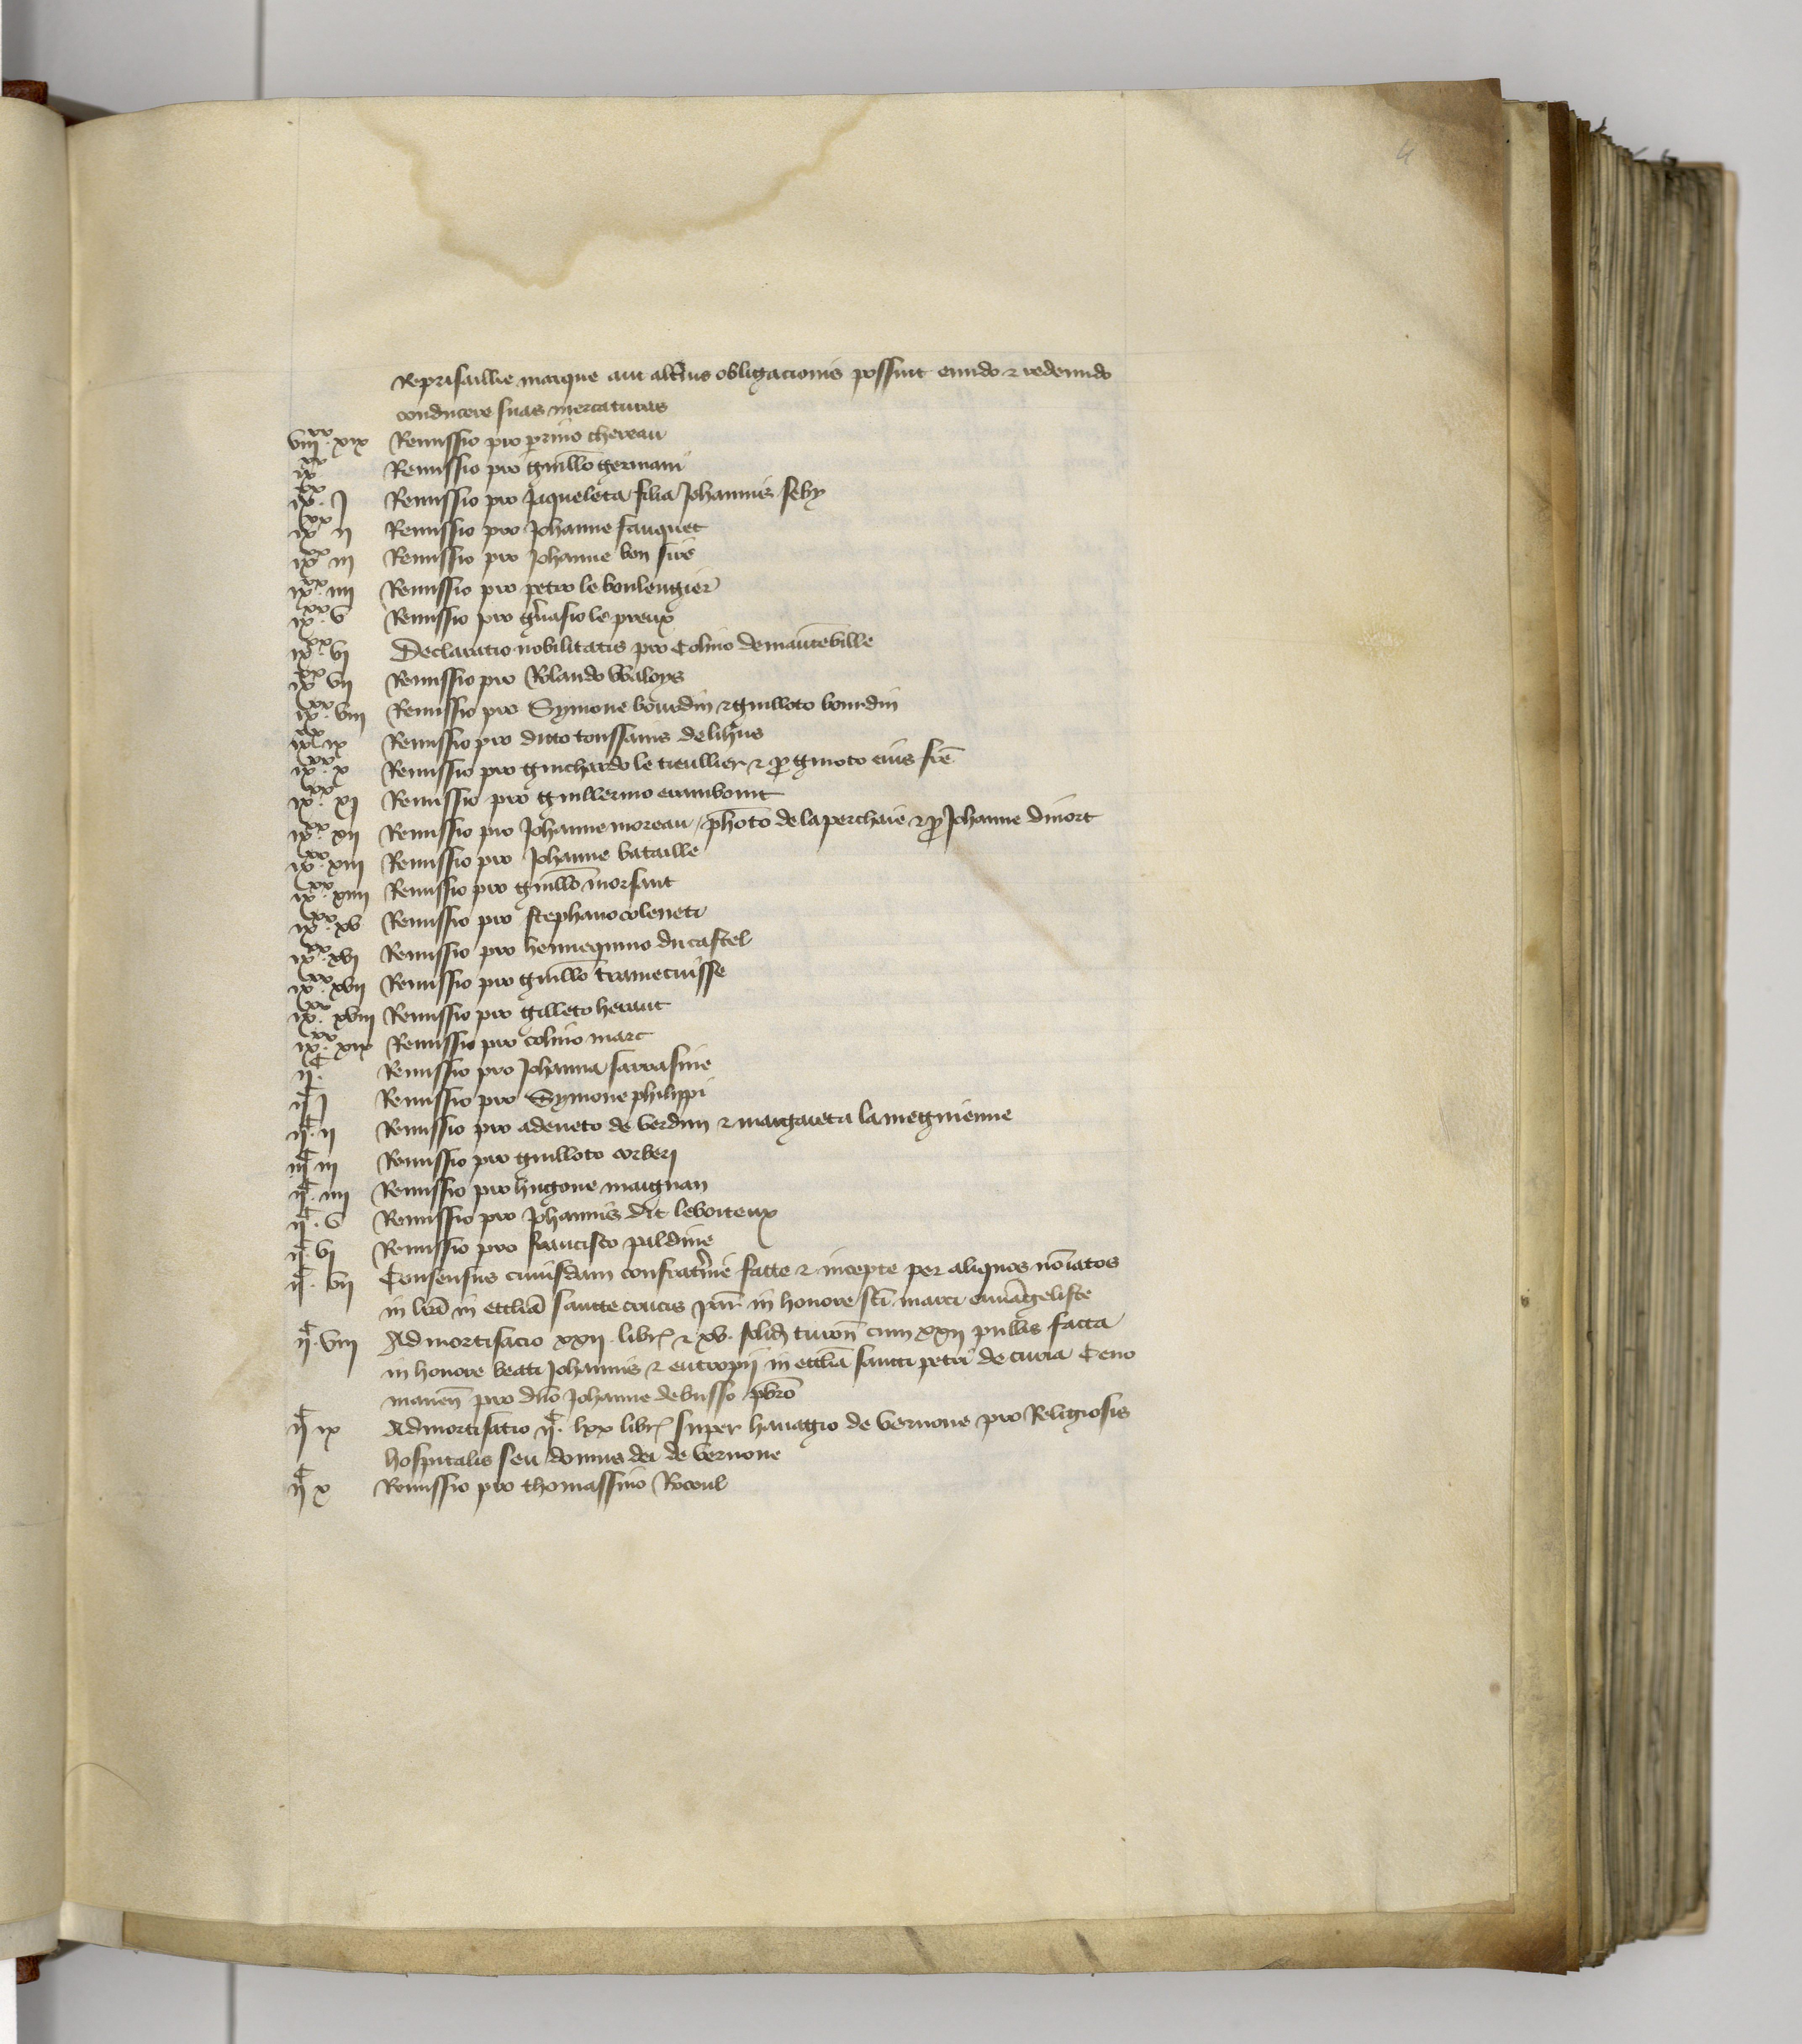 4
Reprisaillie marque aut alterius obligacionis possint eundo & redeundo
conducere suas mercaturas
viii^xx xix Remissio pro perrino chereau
ix^xx Remissio pro guillo germani
ix^xx j Remissio pro Jaqueleta filia Johannis feby
ix^xx ij Remissio pro Johanne fauquet
ix^xx iij Remissio pro Johanne bon sire
ix^xx iiij Remissio pro petro le boulengier
ix^xx v Remissio pro gervasio le preux
ix^xx vj Declaratio nobilitatis pro Colino de mauteville
ix^xx vij Remissio pro Rolando Waloys
ix^xx viij Remissio pro Symone bourdin & guilloto bourdin
ix^xx ix Remissio pro dicto toussains de lihus
ix^xx x Remissio pro guichardo le tieullier & pro guioto eius fre
ix^xx xj Remissio pro guillermo
ix^xx xij Remissio pro Johanne moreau / photo de la perchaie & pro Johanne
ix^xx xiij Remissio pro Johanne bataille
ix^xx xiiij Remissio pro guillo morfaut
ix^xx xv Remissio pro stephano coleneti
ix^xx xvj Remissio pro hennequino du castel
ix^xx xvij Remissio pro guillo tramecuisse
ix^xx xviij Remissio pro gilleto heraut
ix^xx xix Remissio pro colino marc
ij^c Remissio pro Johanna sarrasine
ij^c j Remissio pro Symone philippi
ij^c ij Remissio pro adeneto de verdun & margareta la meguienne
ij^c iij Remissio pro guilloto corbery
ij^c iiij Remissio pro hugone maignan
ij^c v Remissio pro Johannis dit le boiteux
ij^c vj Remissio pro francisco paldine
ij^c vij Consensus cuiusdam confratrnie facte & incepte per aliquos noiatos
in lra in ecclia sancte crucis par in honore sci marci euuangeliste
ij^c viij Admortisacio xxij libr & xv. solid turon cum xxij pullis facta
in honore beati Johannis & eutropij in ecclia sancti petri de curia Ceno
manen pro dno Johanne de busso pbro
ij^c ix Admortisatio ij^c lxx libr super hauagio de vernone pro Religiosis
hospitalis seu domus dei de vernone
ij^c x Remissio pro thomassino Rocoul